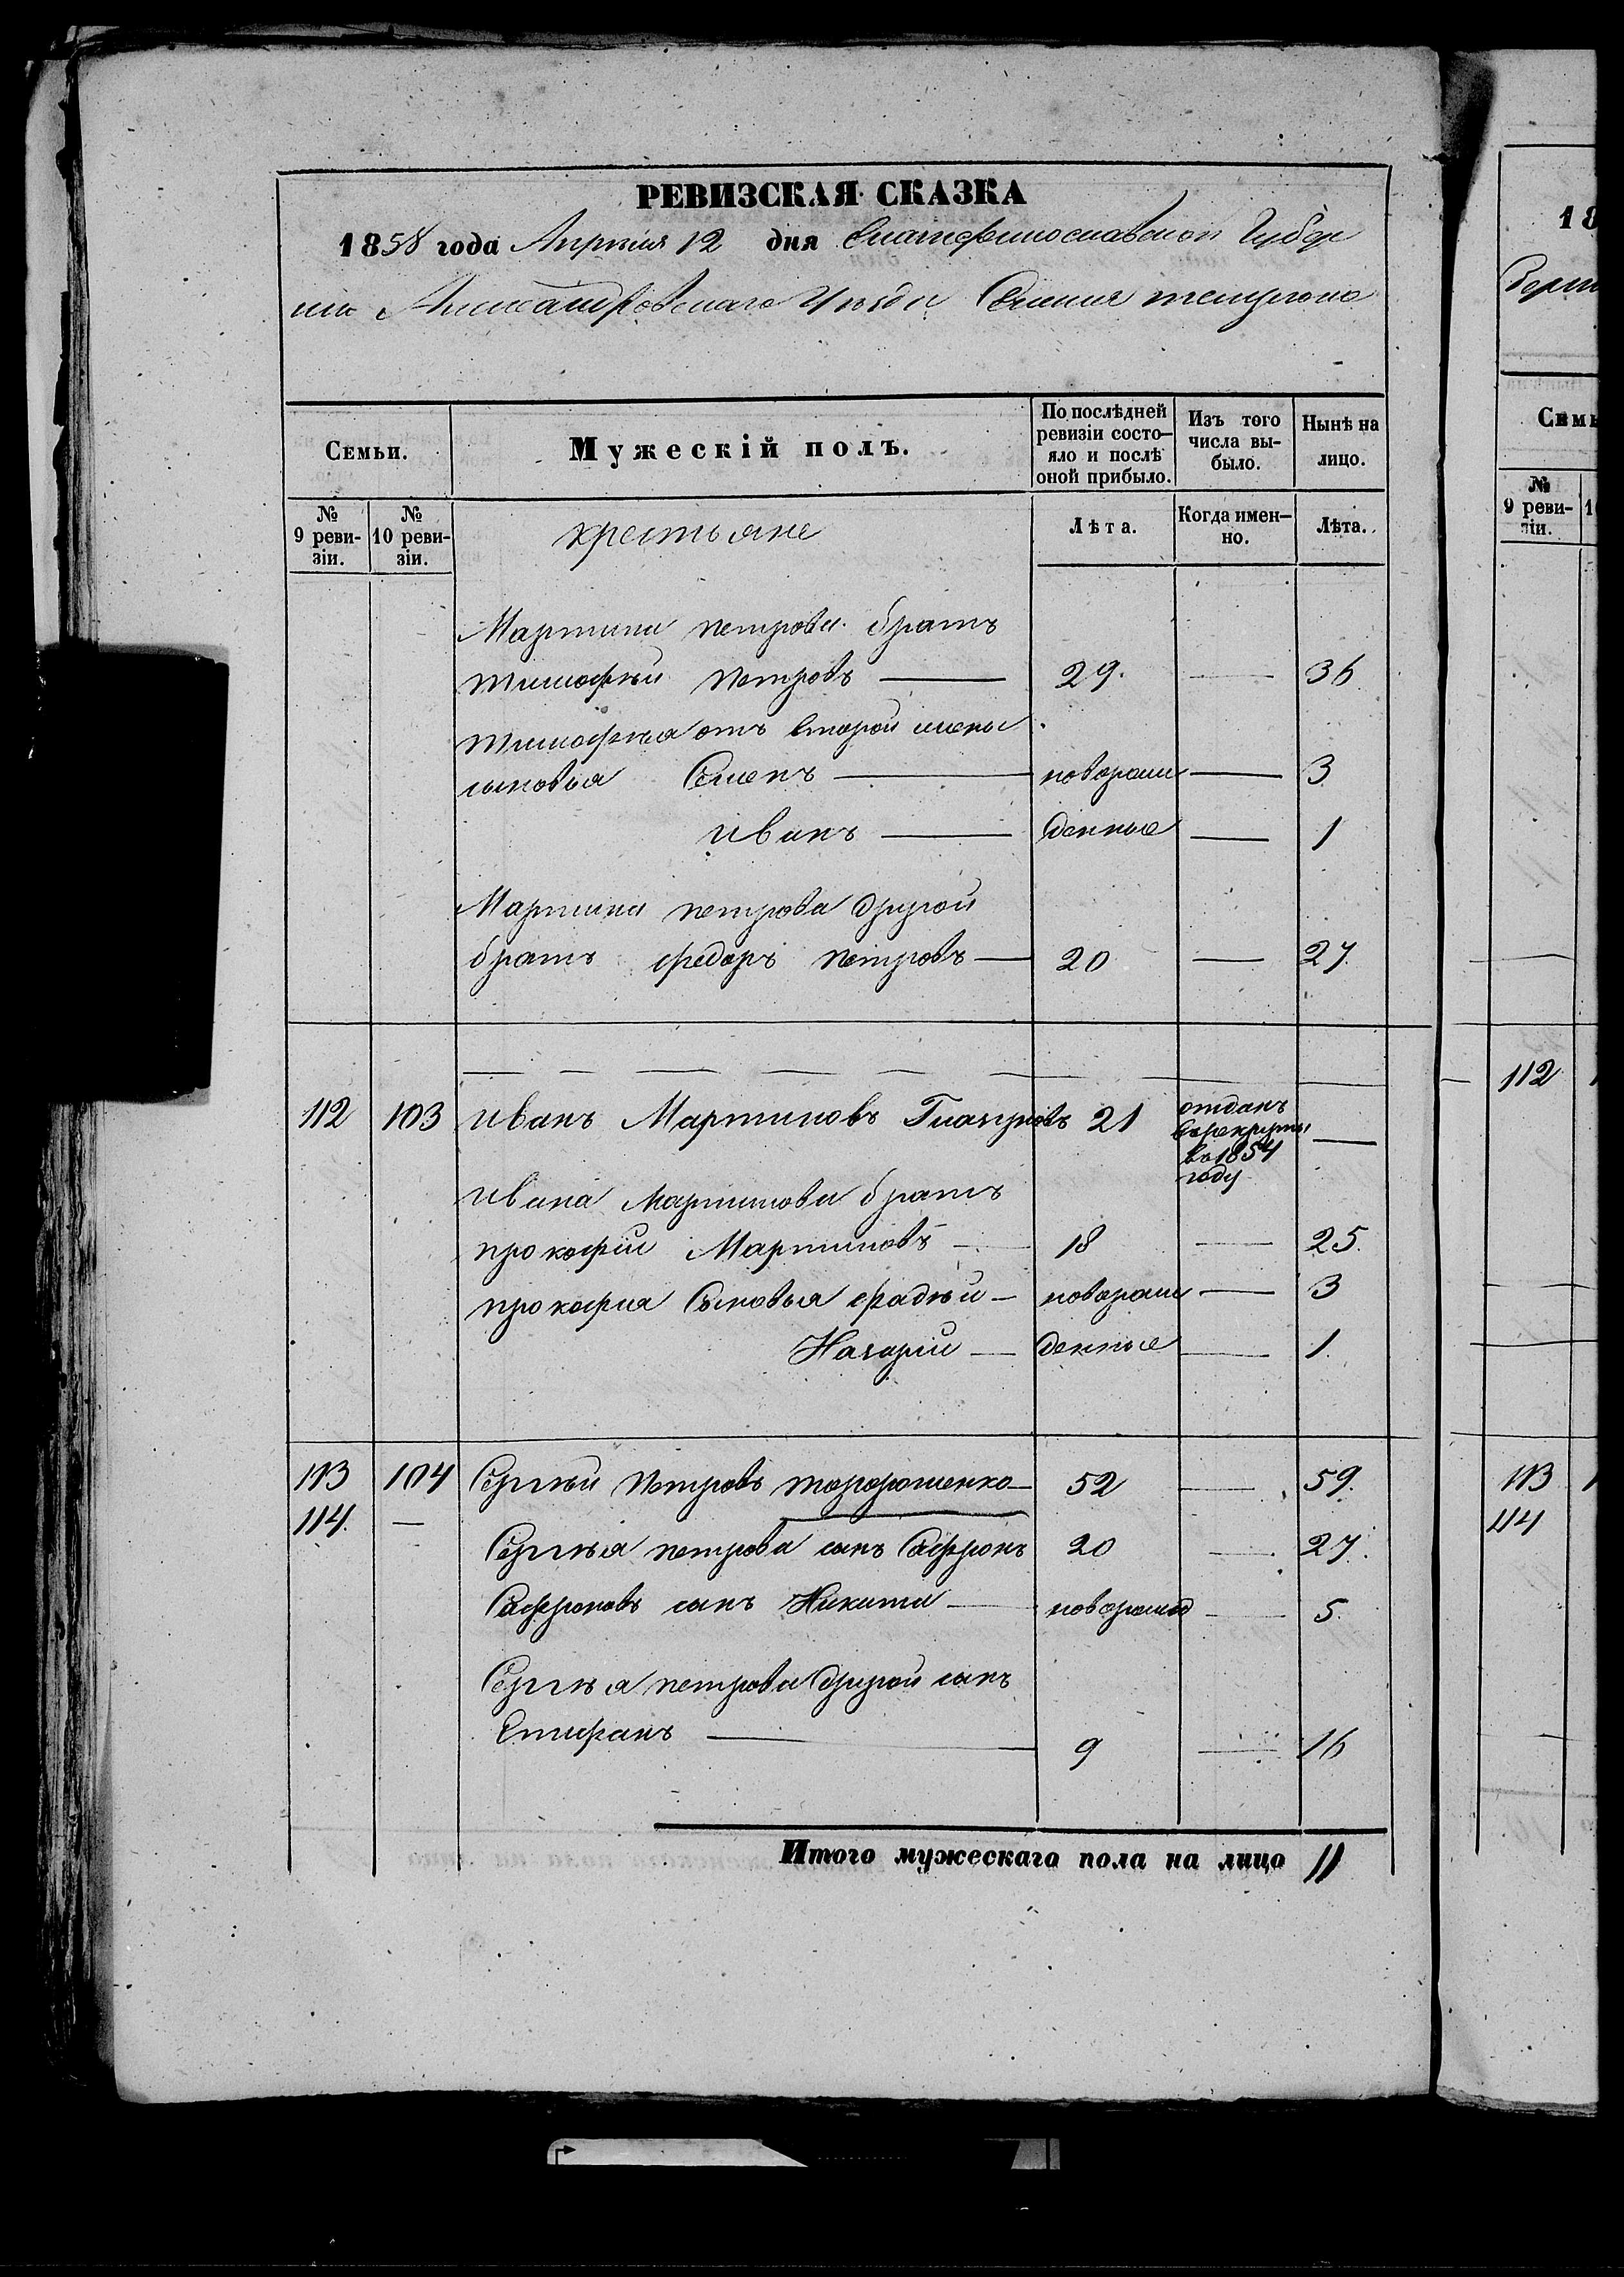 РЕВИЗСКАЯ СКАЗКА
1858 года Апреля 12 дня Екатеринославской Губер
нии Александровскаго Уѣзда Селения
Семьи. Мужескій полъ. По послѣдней ревизіи состо- яло и послѣ оной прибыло. Изъ того числа вы- было. Нынѣ на лицо.
№ 9 реви- зіи. № 10 реви- зіи. крестьяне Лѣта. Когда имен- но. Лѣта.
Мартина петрова братъ
тимофей петровъ — 29. — 36
тимофея отъ второй жены
сыновья Семенъ — новорож — 3
иванъ — денные — 1
Мартина петрова другой
братъ федоръ петровъ — 20 — 27
112 103 иванъ Мартиновъ 21 отданъ
врекруты —
во 1854
году
ивана Мартинова братъ
прокофій Мартиновъ — 18 — 25.
прокофия Сыновья фадѣй — новорож — 3
Назарий — денные — 1.
113 104 Сергѣй петровъ — 52 — 59.
114. —
Сергѣя петрова сынъ Сафронъ 20 — 27.
Сафроновъ сынъ Никита — новорожд — 5.
Сергѣя петрова другой сынъ
Епифанъ — 9 — 16
Итого мужескаго пола на лицо 11
18
Семь
№
9 реви-
зіи.
112
113
114